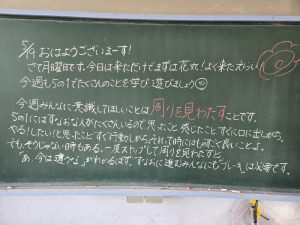 5/9 おはようございまーす!
さて月曜日です。今日は来ただけでまずは花丸!よく来たえらい!
今週も5の1でたくさんのことを学び遊びましょう
今週みんなに意識してほしいことは周りを見わたすことです。
5の1にはすなおなんがたくさんいるので思ったこと感じたことすぐに口に出しがち。
やる!したい!と思ったことすぐ行動しがち。それって時にはものすごく良いことよ。
でも、そうじゃない時もある。一度ストップして周りを見わたすと、
「あ、今は違うな」がわかるはず。すなおに進むみんなにも"ブレーキ"は必要です。